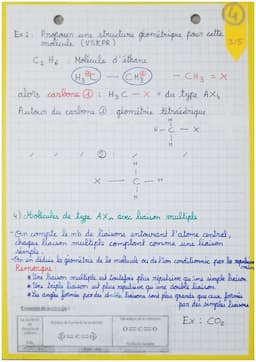 4
315
Ex 1: Proposer une structure géométrique pour cette
molécule (VSEPR)
C₂ H₆ : Molécule d'éthane
H₃C — CH₃ — CH₃ = X
alors carbone ① : H₃C — X = du type AX₄
Autour du carbone ① : géométrie tétraédrique
H
H — C — X
H
②
H
X — C — H
H
4) Molécules de type AXₙ avec liaison multiple
- On compte le nb de liaisons entourant l'atome central,
chaque liaison multiple comptant comme une liaison
simple.
- On en déduit la géométrie de la molécule ou de l'ion conditionnée par la répulsion
Remarque :
• Une liaison multiple est toutefois plus répulsive qu'une simple liaison.
• Une triple liaison est plus répulsive qu'une double liaison.
• Les angles formés par des double liaisons sont plus grands que ceux formés
par des simples liaisons
Ex : CO₂